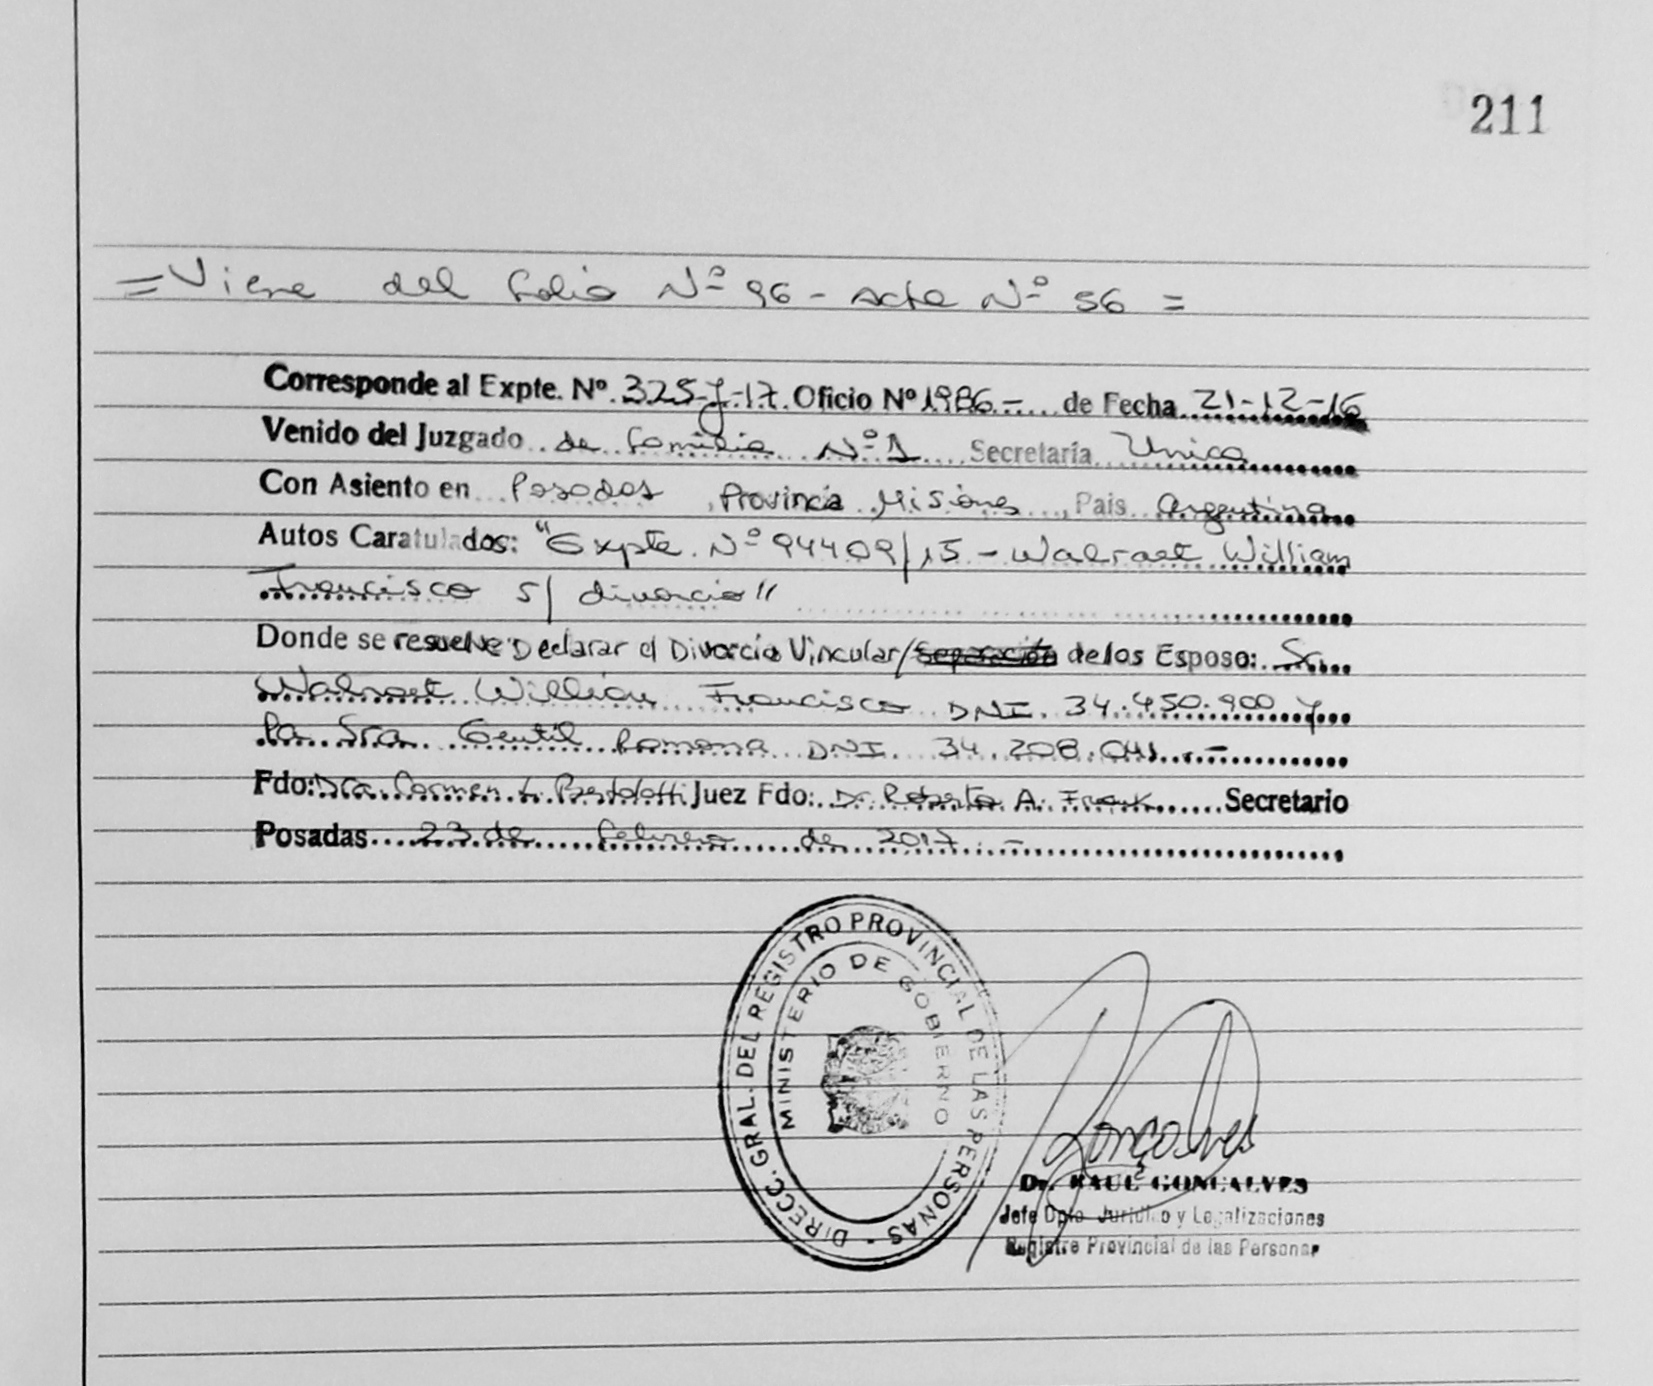 211
= Viene del folio Nº 96 - Acta Nº 56 =
Corresponde al Expte. Nº. 325-J-17. Oficio Nº 1986.- de Fecha 21-12-16
Venido del Juzgado de Familia Nº 1 Secretaría Unica
Con Asiento en Posadas, Provincia Misiones, Pais Argentina
Autos Caratulados: "Expte. Nº 94409/15 - Walraet William
Francisco s/ divorcio"
Donde se resuelve: Declarar el Divorcio Vincular/Separación de los Esposo: Sr.
Walraet William Francisco DNI. 34.450.900 y
la Sra. Gentil Romona DNI. 34.208.041.-
Fdo: Dra. Carmen L. Bertolotti Juez Fdo: Dr. Roberto A. Frank Secretario
Posadas 23 de febrero de 2017.-
DIRECC. GRAL. DEL REGISTRO PROVINCIAL DE LAS PERSONAS -
MINISTERIO DE GOBIERNO
Gonçalves
Dr. RAUL GONCALVES
Jefe Dpto. Jurídico y Legalizaciones
Registro Provincial de las Personas